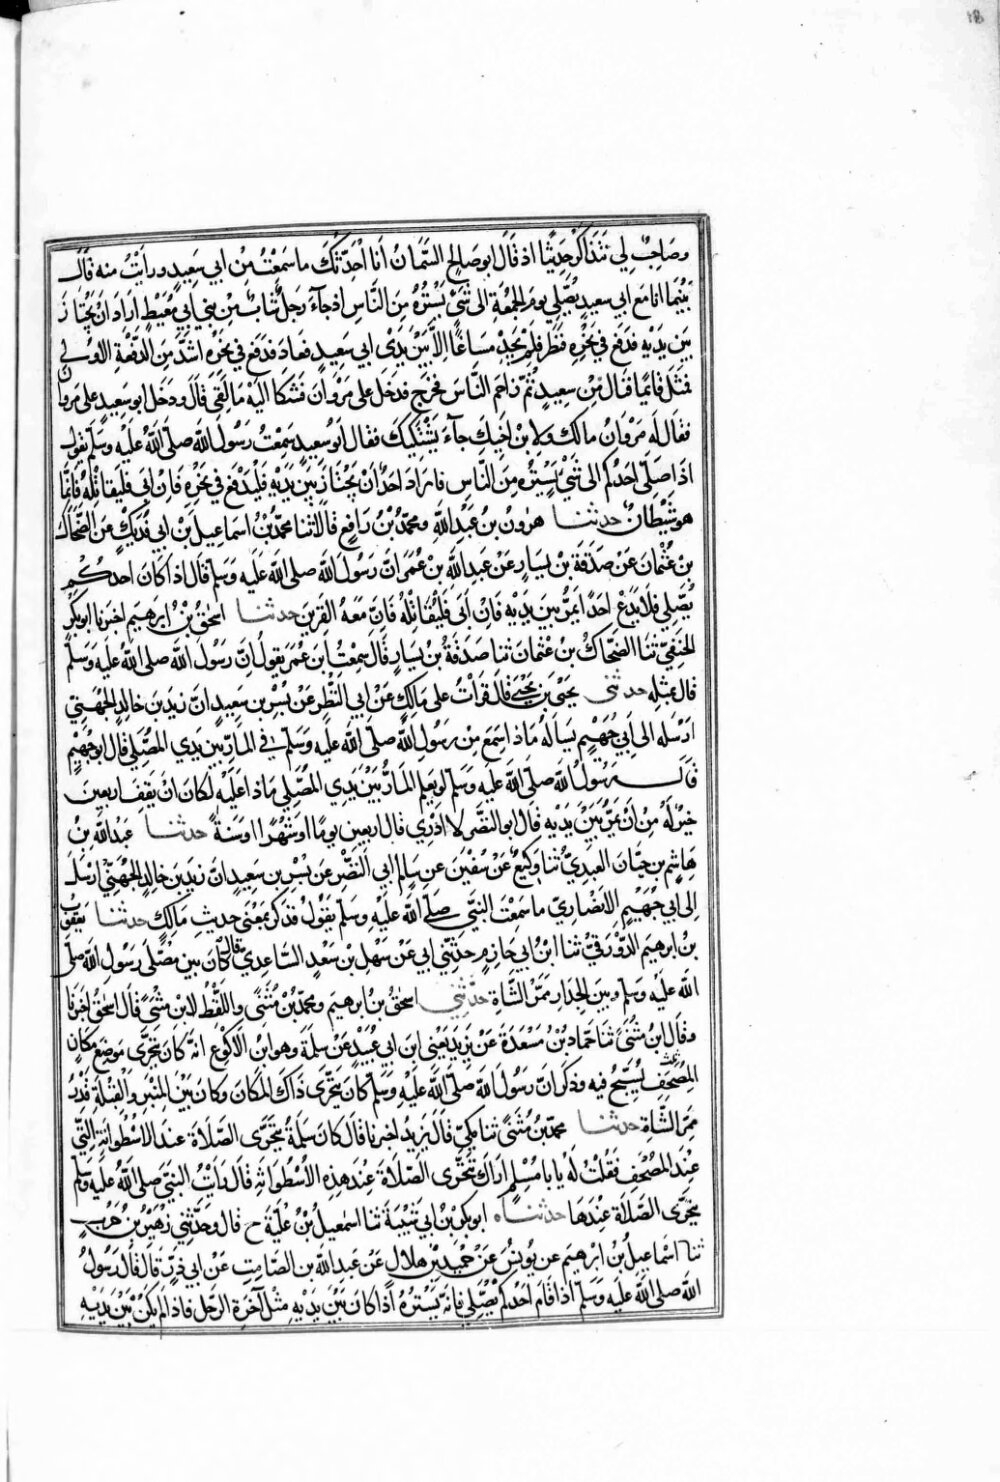 18
وصاحب لي نتذاكر حديثا اذ قال ابو صالح السمان أنا أحدثك ما سمعت من ابي سعيد ورأيت منه قال
بينما انا مع ابي سعيد يصلي يوم الجمعة الى شئ يستره من الناس اذ جاء رجل شاب من بني ابي معيط اراد ان يجتاز
بين يديه فدفع في نحره فنظر فلم يجد مساغا إلا بين يدي ابي سعيد فعاد فدفع في نحره اشد من الدفعة الاولى
فمثل قائما فنال من سعيد ثم زاحم الناس فخرج فدخل على مروان فشكا اليه ما لقى قال ودخل ابو سعيد على مروان
فقال له مروان مالك ولابن اخيك جاء يشتكيك فقال أبو سعيد سمعت رسول الله صلى الله عليه وسلم يقول
اذا صلى احدكم الى شئ يستره من الناس فاراد احد أن يجتاز بين يديه فليدفع في نحره فان ابى فليقاتله فانما
هو شيطان حدثنا هرون بن عبد الله ومحمد بن رافع قالا ثنا محمد بن اسماعيل بن ابي فديك عن الضحاك
بن عثمان عن صدقة بن يسار عن عبد الله بن عمر ان رسول الله صلى الله عليه وسلم قال اذا كان احدكم
يصلي فلا يدع احدا يمر بين يديه فان أبى فليقاتله فان معه القرين حدثنا اسحق بن ابرهيم اخبرنا ابو بكر
الحنفي ثنا الضحاك بن عثمان ثنا صدقة بن يسار قال سمعت ابن عمر يقول ان رسول الله صلى الله عليه وسلم
قال بمثله حدثني يحيى بن يحيى قال قرأت على مالك عن ابي النضر عن بسر بن سعيد ان زيد بن خالد الجهني
ارسله الى أبي جهيم يسأله ماذا سمع من رسول الله صلى الله عليه وسلم في المار بين يدي المصلي قال ابو جهيم
قال رسول الله صلى الله عليه وسلم لو يعلم المار بين يدي المصلي ماذا عليه لكان ان يقف اربعين
خير له من ان يمر بين يديه قال ابو النضر لا ادري قال اربعين يوما او شهرا او سنة حدثنا عبد الله بن
هاشم بن حيان العبدي ثنا وكيع عن سفين عن سالم ابي النضر عن بسر بن سعيد ان زيد بن خالد الجهني ارسل
الى ابي جهيم الانصاري ما سمعت النبي صلى الله عليه وسلم يقول فذكر بمعنى حديث مالك حدثنا يعقوب
بن ابرهيم الدورقي ثنا ابن ابي حازم حدثني ابي عن سهل بن سعد الساعدي قال كان بين مصلى رسول الله صلى
الله عليه وسلم وبين الجدار ممر الشاة حدثني اسحق بن ابرهيم ومحمد بن مثنى واللفظ لابن مثنى قال اسحق اخبرنا
وقال ابن مثنى ثنا حماد بن مسعدة عن يزيد يعني ابن ابي عبيد عن سلمة وهو ابن الاكوع انه كان يتحرى موضع مكان
المصحف يسبح فيه وذكر ان رسول الله صلى الله عليه وسلم كان يتحرى ذاك المكان وكان بين المنبر والقبلة قدر
ممر الشاة حدثنا محمد بن مثنى ثنا مكي قال يزيد اخبرنا قال كان سلمة يتحرى الصلاة عند الاسطوانة التي
عند المصحف فقلت له يابا مسلم اراك تتحرى الصلاة عند هذه الاسطوانة قال رأيت النبي صلى الله عليه وسلم
يتحرى الصلاة عندها حدثنا ابو بكر بن ابي شيبة ثنا اسمعيل بن علية ح قال وحدثني زهير بن حرب
ثنا اسماعيل بن ابرهيم عن يونس عن حميد بن هلال عن عبد الله بن الصامت عن ابي ذر قال قال رسول
الله صلى الله عليه وسلم اذا قام احدكم يصلي فانه يستره اذا كان بين يديه مثل آخرة الرحل فاذا لم يكن بين يديه